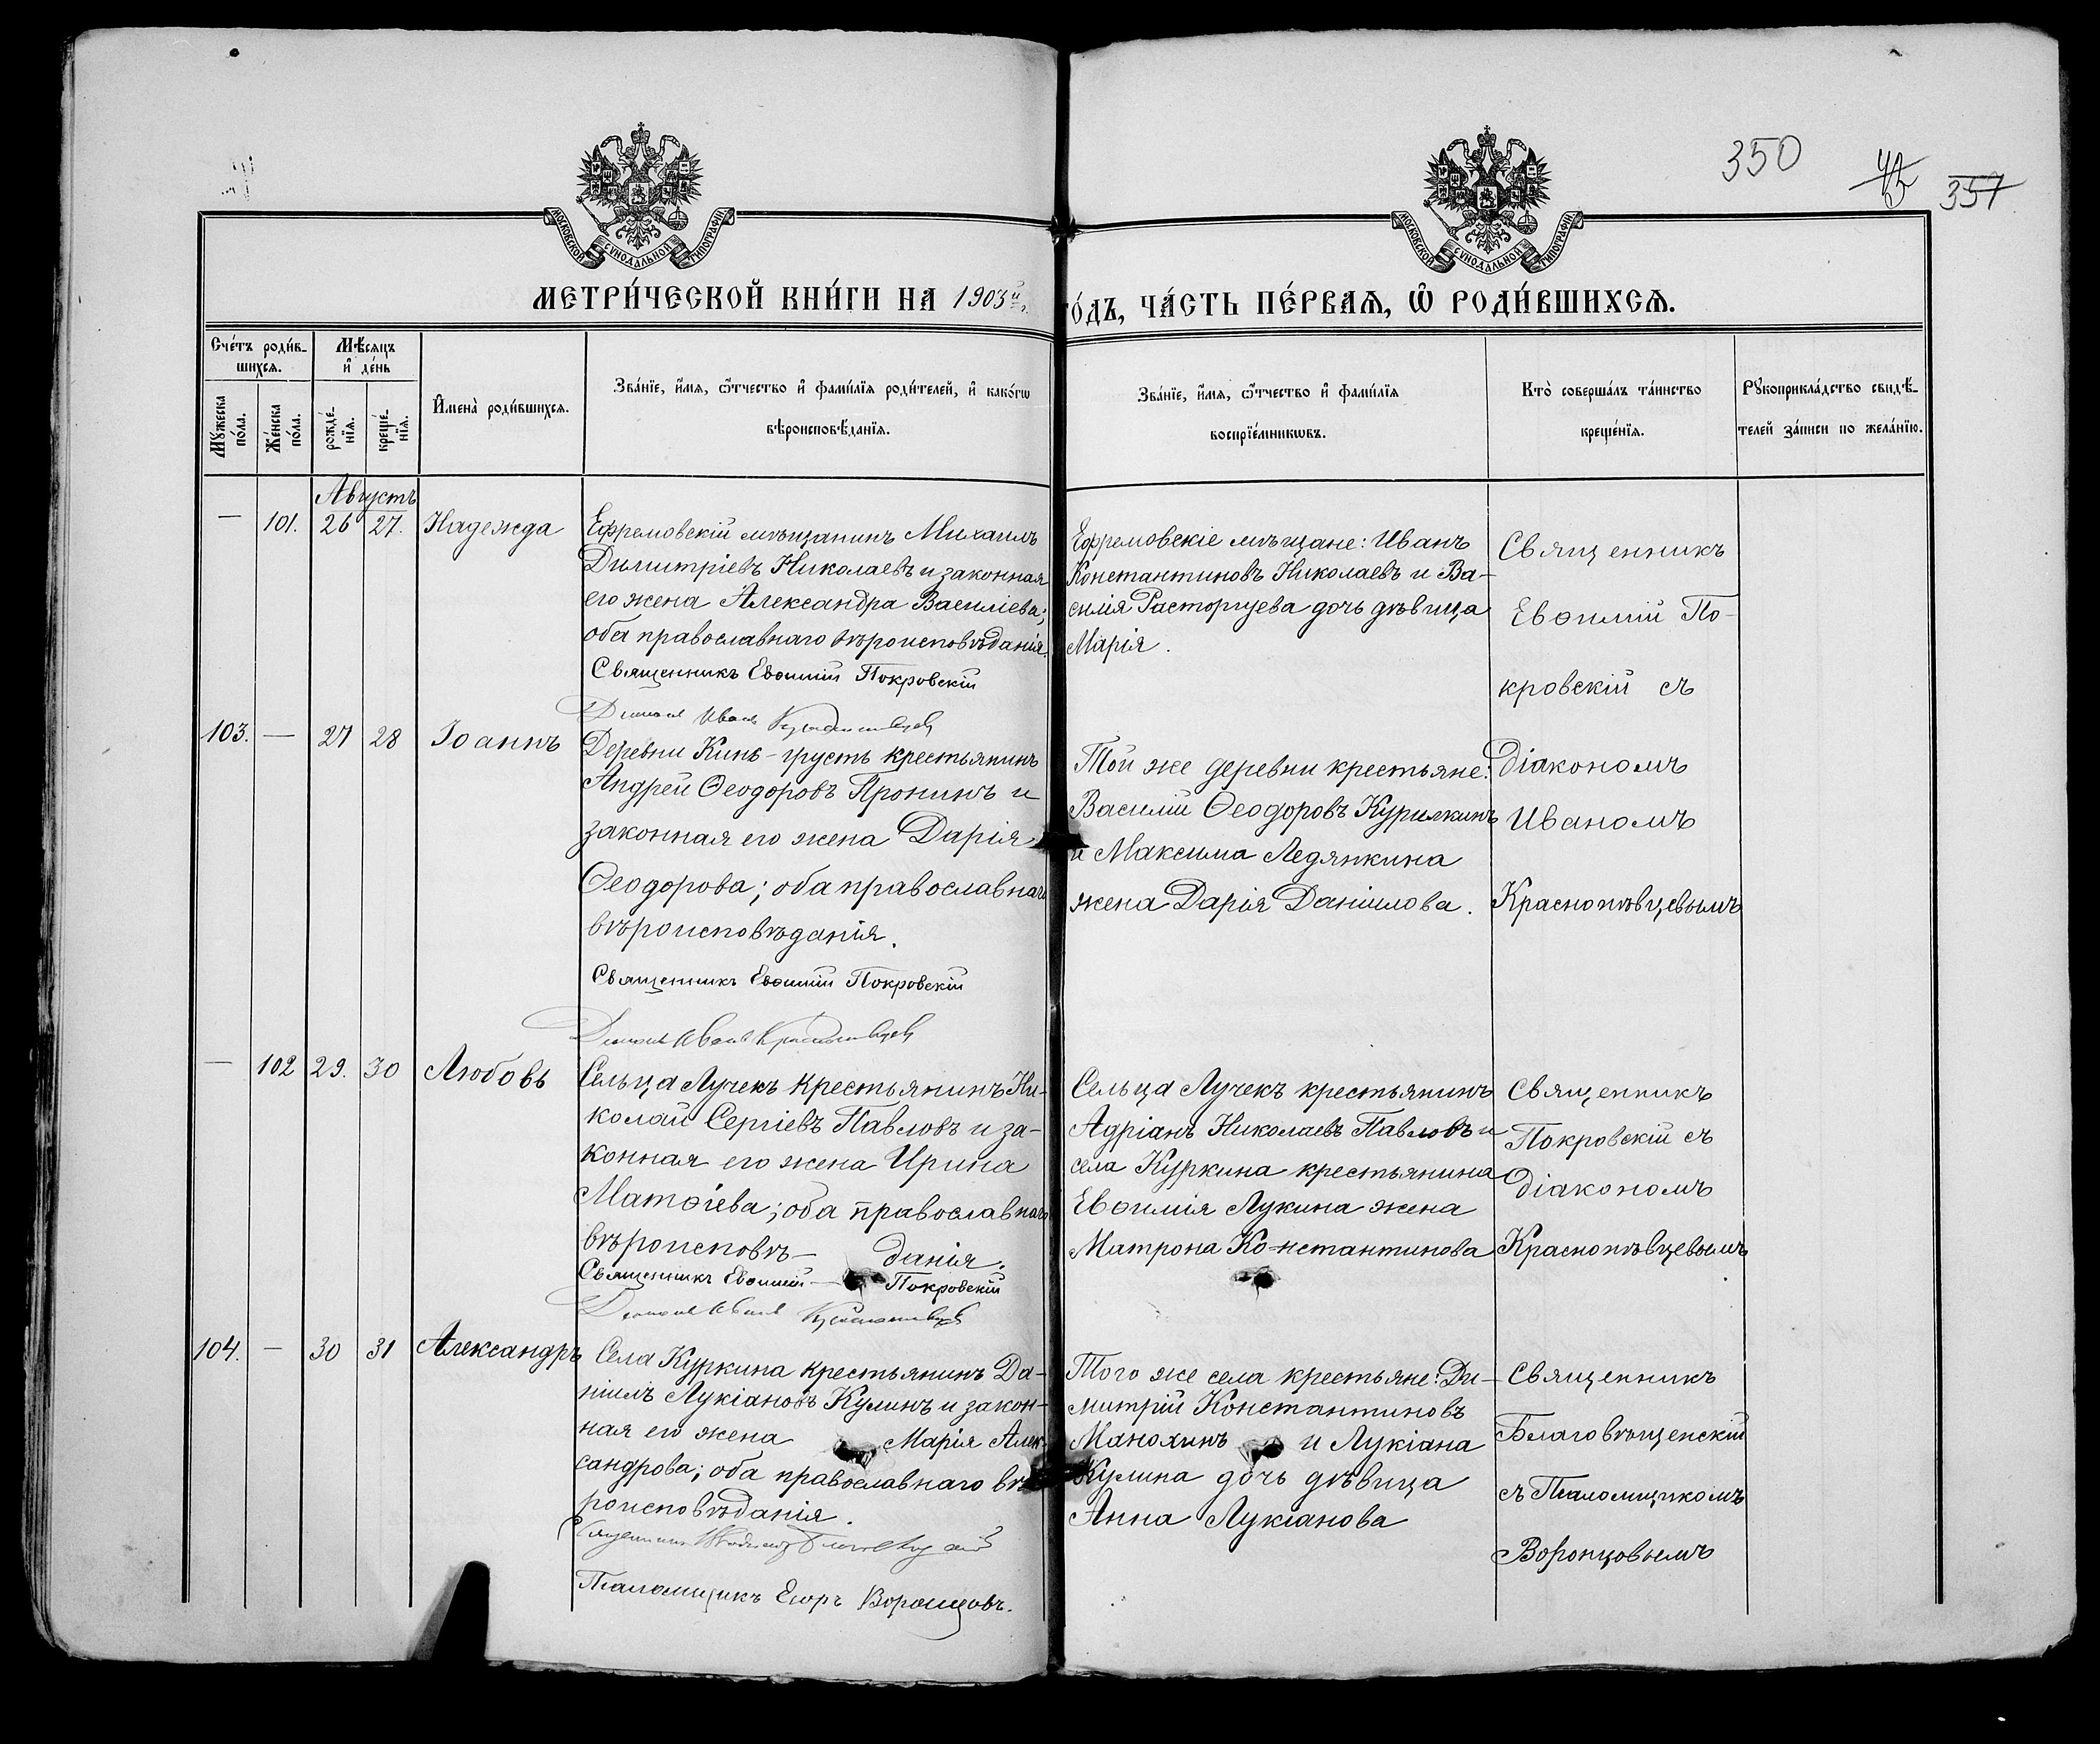 350
45
357
МОСКОВСКОЙ СѴНОДАЛЬНОЙ ТИПОГРАФІИ
МОСКОВСКОЙ СѴНОДАЛЬНОЙ ТИПОГРАФІИ
МЕТРИ́ЧЕСКОЙ КНИ́ГИ НА 1903й
ГО́ДЪ, ЧА́СТЬ ПЕ́РВАѦ, Ѽ РОДИ́ВШИХСѦ.
Сче́тъ роди́в-
шихсѧ.
Мѣ́сѧцъ
и҆ де́нь
Мꙋ́жеска
по́ла.
Же́нска
по́ла.
рожде́-
нїѧ.
креще́-
нїѧ.
И҆мена̀ роди́вшихсѧ.
Зва́нїе, и҆́мѧ, ѻ҆́тчество и҆ фами́лїѧ роди́телей, и҆ како́гѡ
вѣроисповѣ́данїѧ.
Зва́нїе, и҆́мѧ, ѻ҆́тчество и҆ фами́лїѧ
воспрїе́мникѡвъ.
Кто̀ соверша́лъ та́инство
креще́нїѧ.
Рꙋкоприкла́дство свидѣ́-
телей за́писи по жела́нїю.
Августъ
— 101. 26 27. Надежда
Ефремовскій мѣщанинъ Михаилъ
Димитріевъ Николаевъ и законная
его жена Александра Василіева;
оба православнаго вѣроисповѣданія.
Священникъ Евѳимій Покровскій
Діаконъ Иванъ Краснопѣвцевъ
Ефремовскіе мѣщане: Иванъ
Константиновъ Николаевъ и Ва-
силія Расторгуева дочь дѣвица
Марія.
Священникъ
Евѳимій По-
кровскій съ
діакономъ
Иваномъ
Краснопѣвцевымъ
103. — 27 28 Іоаннъ
Деревни Кинь-грусть крестьянинъ
Андрей Ѳеодоровъ Пронинъ и
законная его жена Дарія
Ѳеодорова; оба православнаго
вѣроисповѣданія.
Священникъ Евѳимій Покровскій
Діаконъ Иванъ Краснопѣвцевъ
Той же деревни крестьяне:
Василій Ѳеодоровъ Курилкинъ
и Максима Ледянкина
жена Дарія Даніилова.
— 102 29. 30 Любовь
Сельца Лучекъ крестьянинъ Ни-
колай Сергіевъ Павловъ и за-
конная его жена Ирина
Матѳіева; оба православнаго
вѣроисповѣ- данія.
Священникъ Евѳимій — Покровскій
Діаконъ Иванъ Краснопѣвцевъ
Сельца Лучекъ крестьянинъ
Адріанъ Николаевъ Павловъ и
села Куркина крестьянина
Евѳимія Лукина жена
Матрона Ко-нстантинова
Священникъ
Покровскій съ
діакономъ
Краснопѣвцевымъ
104. — 30 31 Александръ
Села Куркина крестьянинъ Да-
ніилъ Лукіановъ Кулинъ и закон-
ная его жена Марія Алек-
сандрова; оба православнаго вѣ-
роисповѣданія.
Священникъ Благовѣщенскій
Псаломщикъ Егоръ Воронцовъ.
Того же села крестьяне: Ди-
митрій Константиновъ
Манохинъ и Лукіана
Кулина дочь дѣвица
Анна Лукіанова
Священникъ
Благовѣщенскій
съ Псаломщикомъ
Воронцовымъ